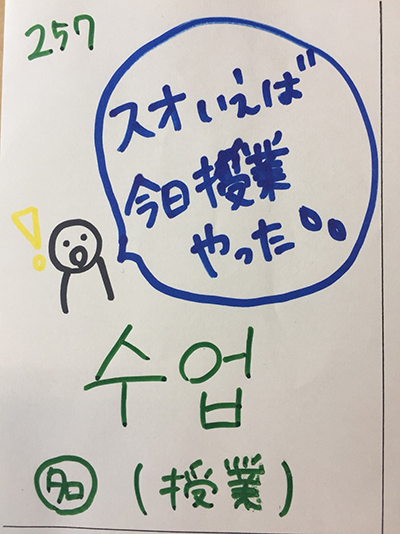 257
スオいえば
今日授業
やった。。
!
수업
名 (授業)